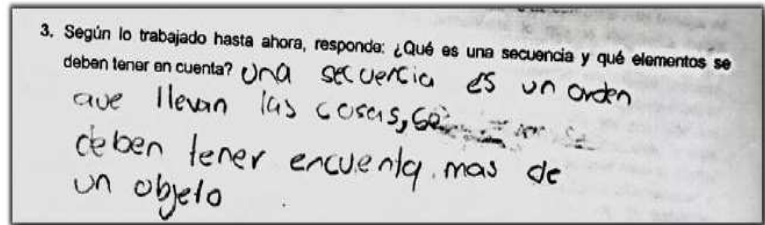 3. Según lo trabajado hasta ahora, responde: ¿Qué es una secuencia y qué elementos se
deben tener en cuenta? Una secuencia es un orden
que llevan las cosas, se
deben tener encuenta. mas de
un objeto